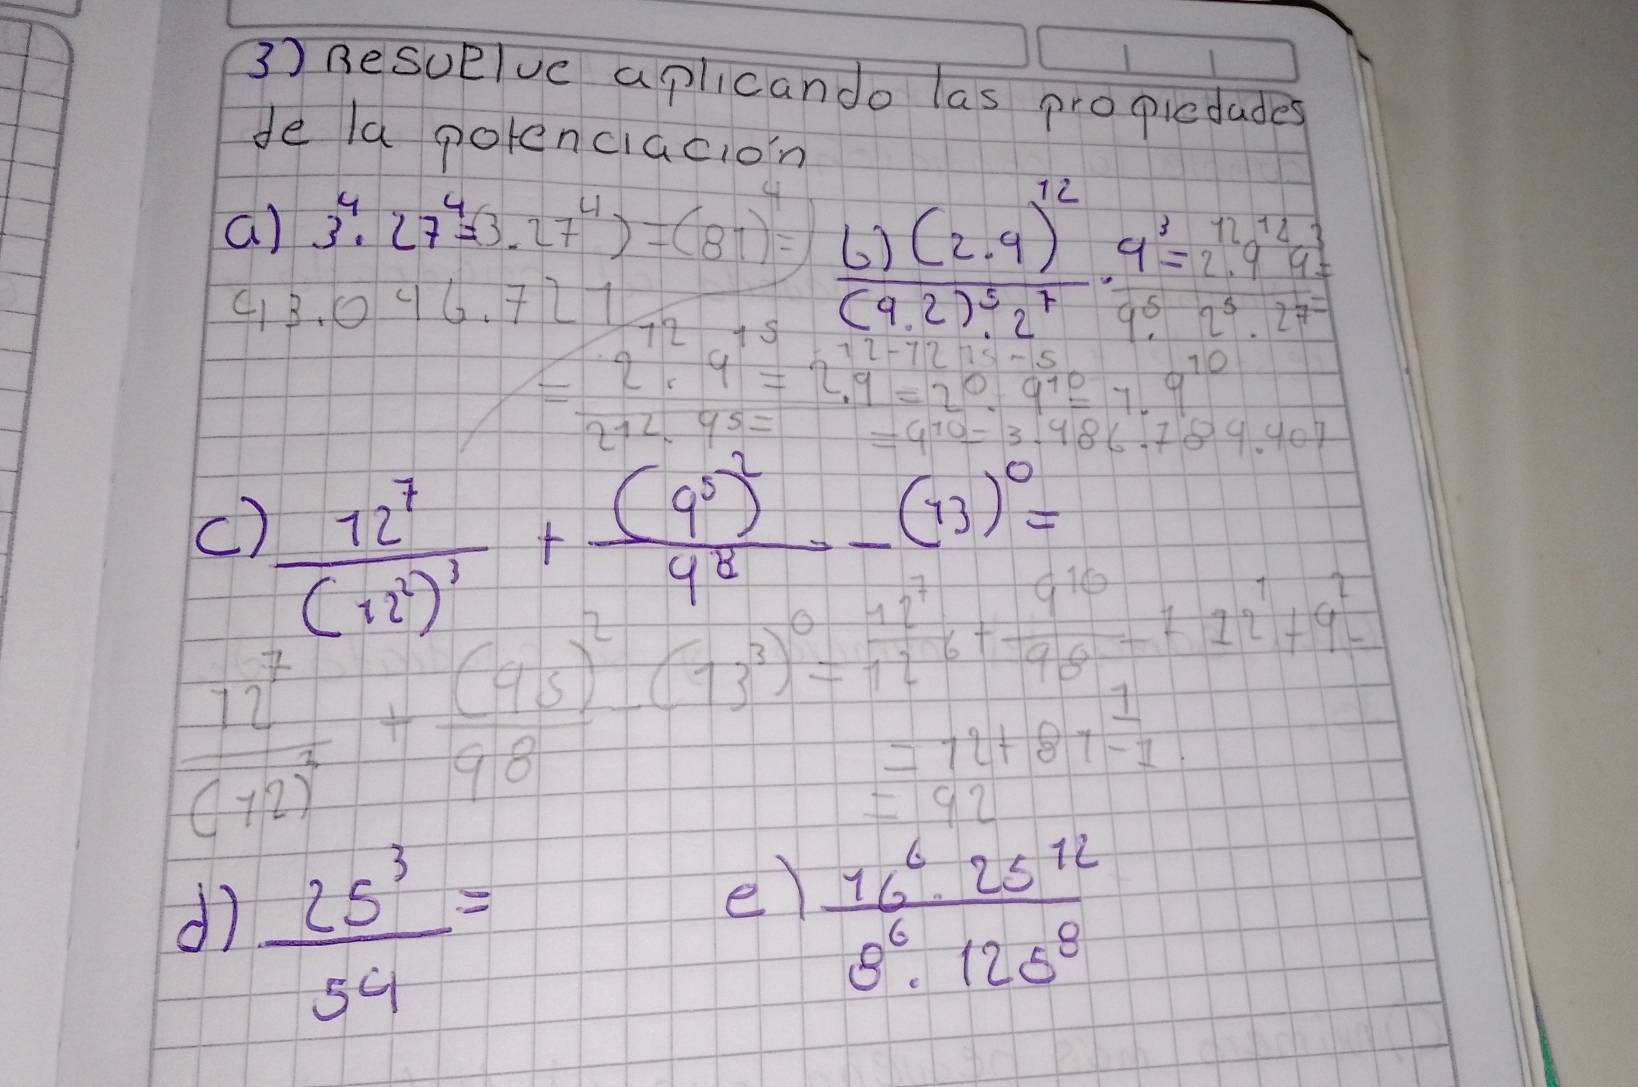 3) Resuelve aplicando las propiedades
de la potenciación
a) 3⁴. 27⁴=(3.27⁴)=(81)⁴=
43.046.721
b) (2.9)¹² . 9³ = 2¹².9¹² 9³=
(9.2)⁵. 2⁷ 9⁵. 2⁵. 27=
= 2¹². 9¹⁵ = 2¹²⁻¹².9¹⁵⁻⁵ = 2⁰. 9¹⁰ = 1. 9¹⁰
2¹². 95= =9¹⁰=3.486.784.401
c) 12⁷ + (9⁵)² - (13)⁰ =
(12²)³ 9⁸
12⁷ + (95)² - (13³)⁰ = 12⁷ + 9¹⁰ - 1 12¹+9²-
(12)³ 98 12⁶ 98 1
= 12+81-1
= 92
d) 25³ =
54
e) 16⁶. 25¹²
8⁶. 125⁸